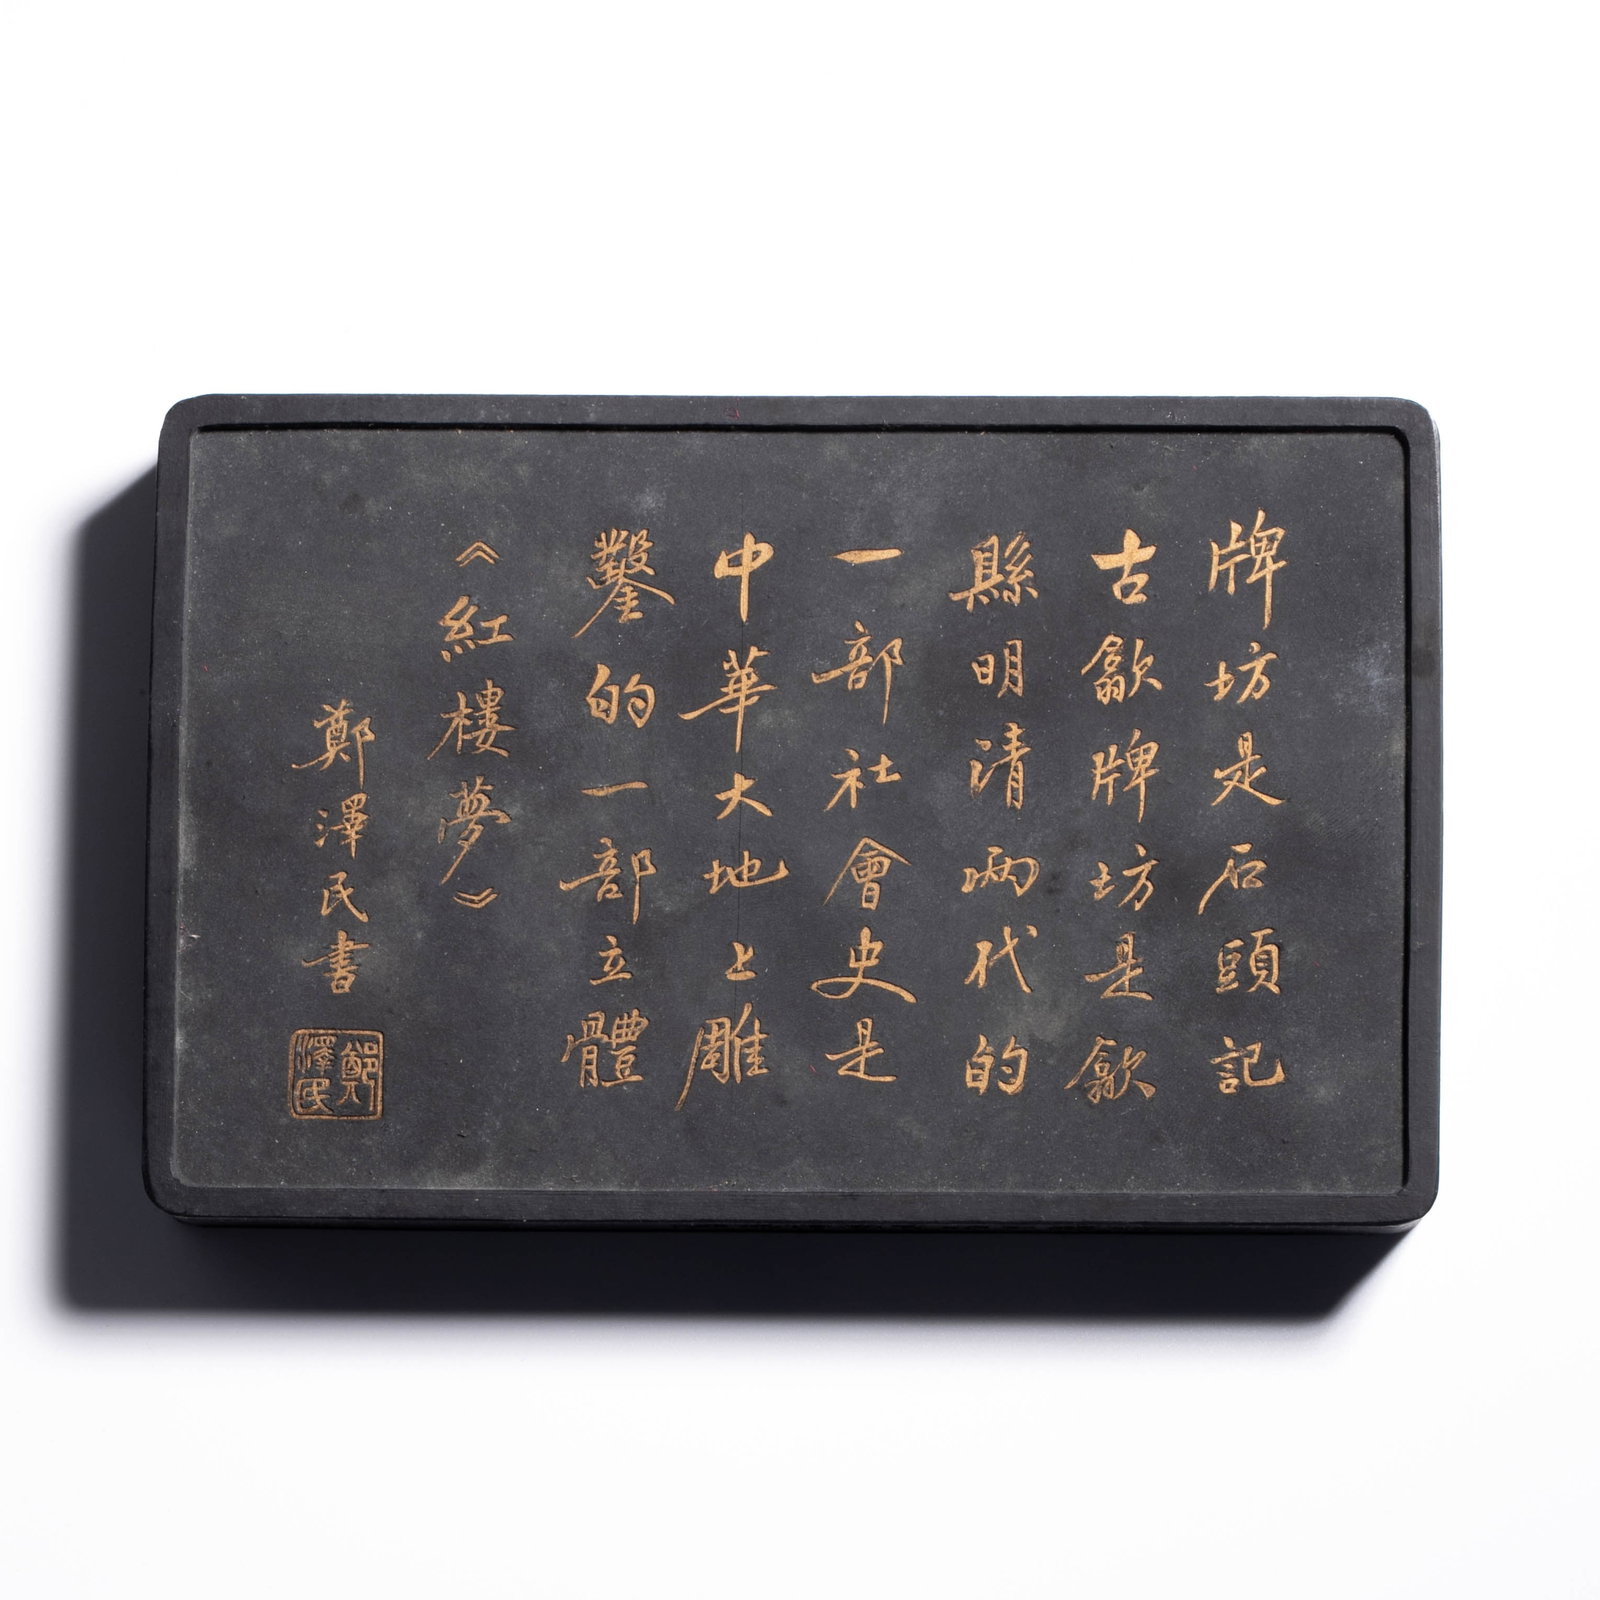 牌坊是石頭記
古歙牌坊是歙
縣明清兩代的
一部社會史是
中華大地上雕
鑿的一部立體
《紅樓夢》
鄭澤民書
鄭澤民